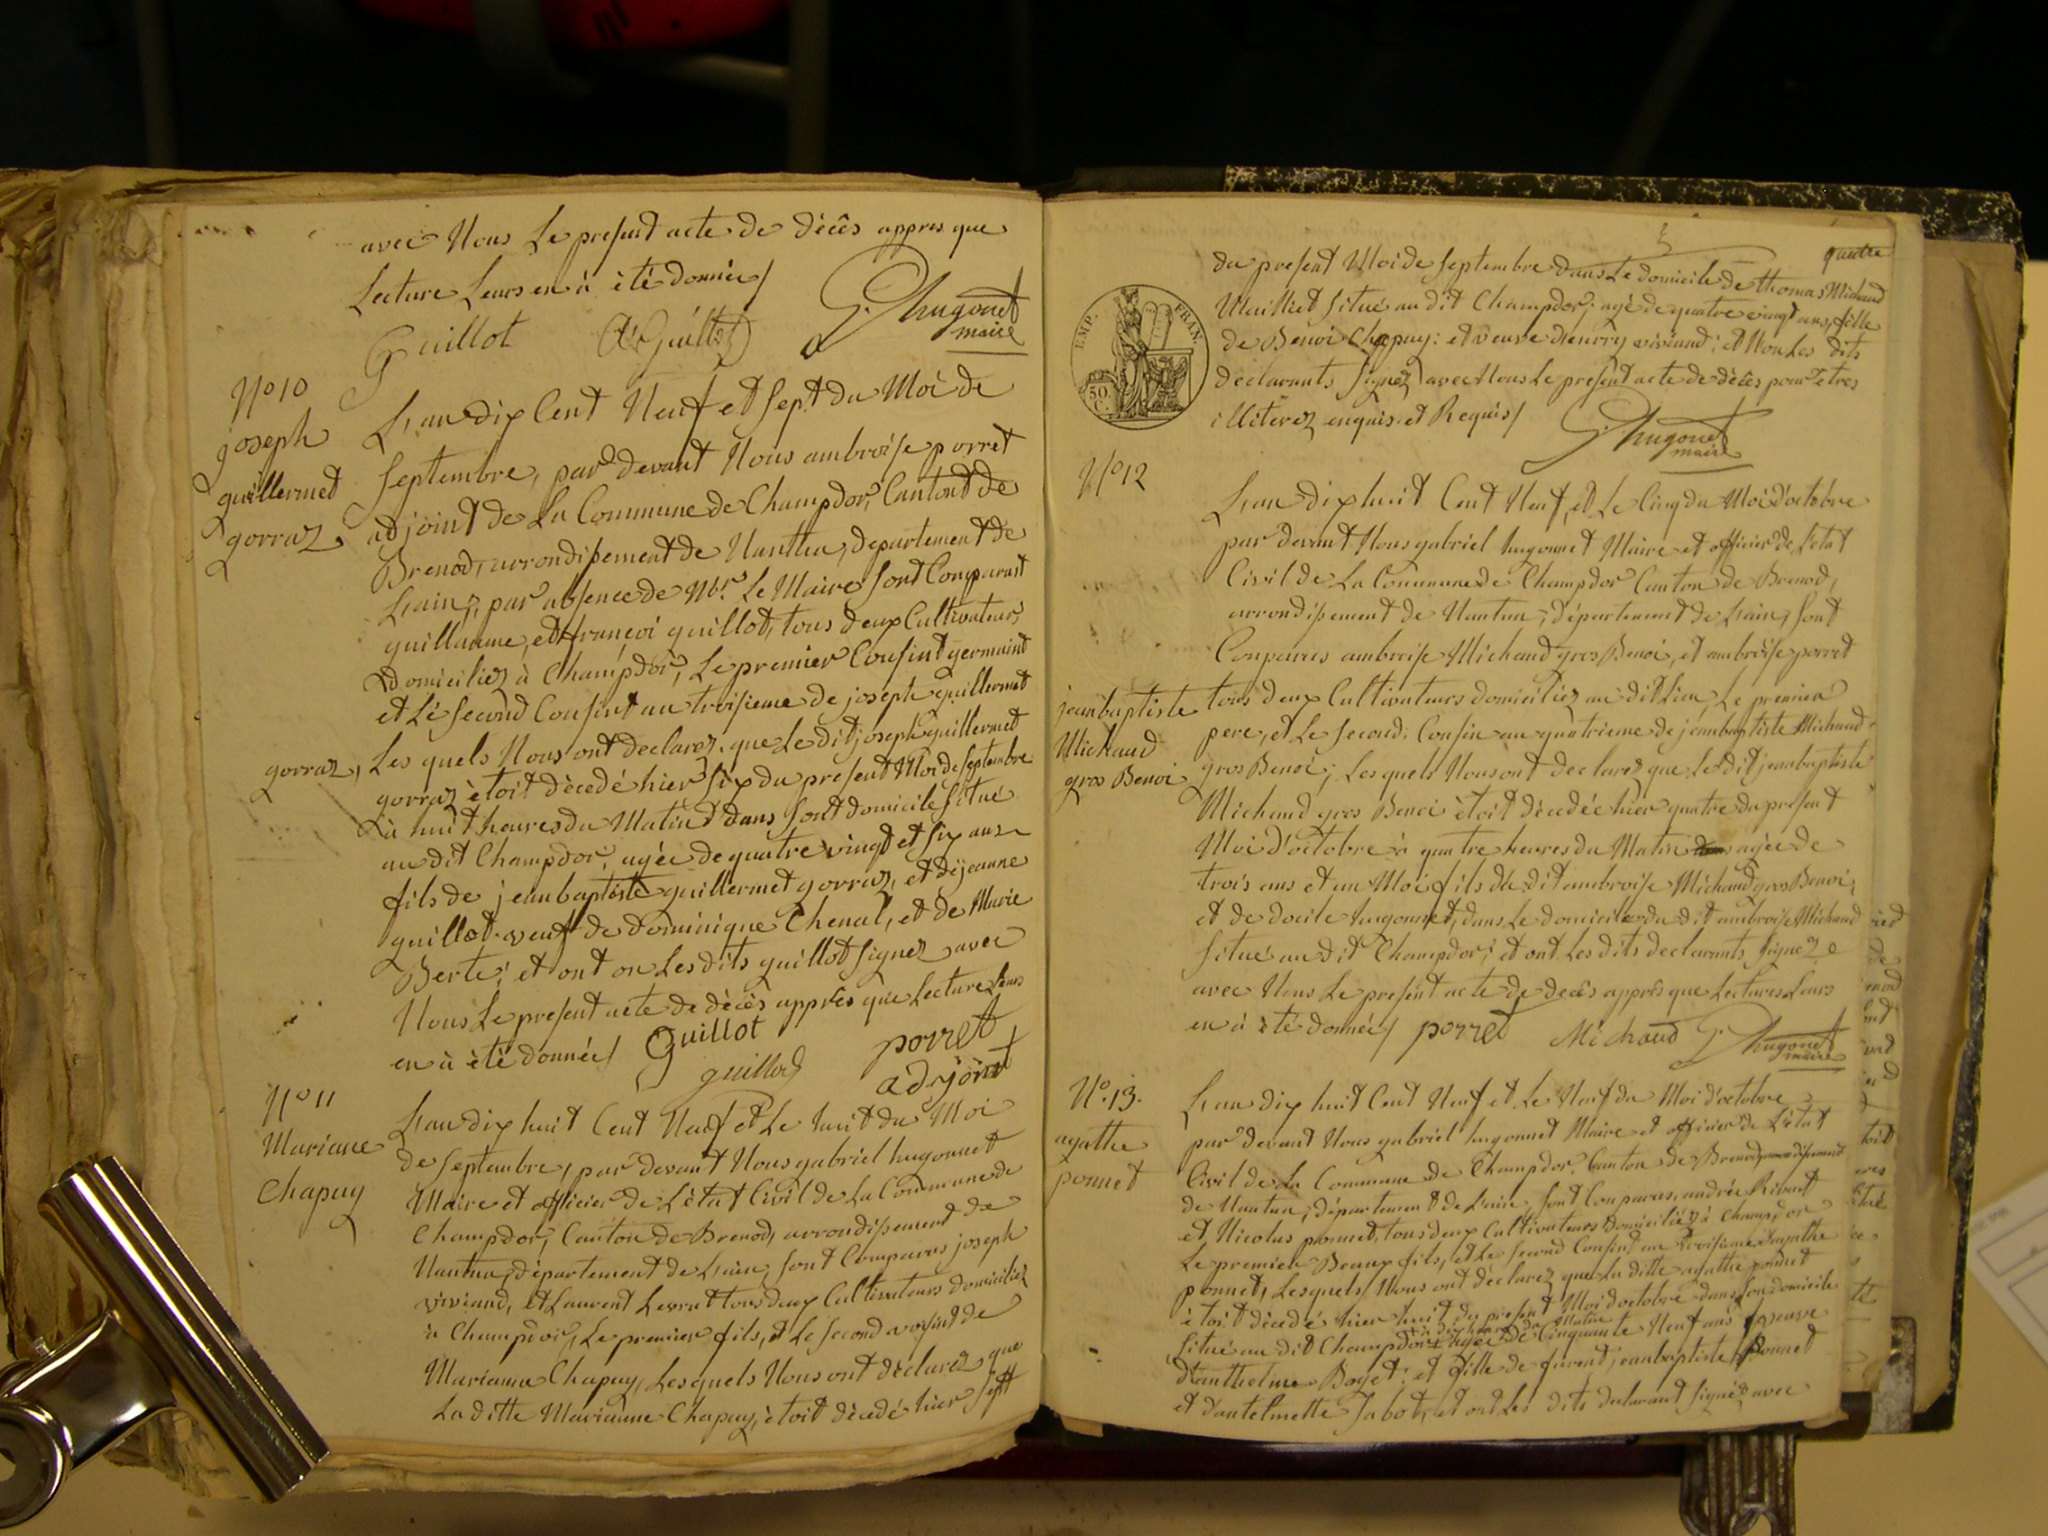 avec Nous Le present acte de décês appres que
Lecture Leurs en à èté donnée/
Guillot Guillot G. hugonet
maire
N° 10
joseph
guillermet
gorraz,
L'an dix Cent Neuf et Sept du Moi de
Septembre, par devant Nous ambroise porret
adjoint de La Commune de Champdor, Cantont de
Brenod, arrondissement de Nantua, departement de
L'ain, par absence de Mr. Le Maire Sont Comparant
guillaume, et françoi guillot, tous deux Cultivateurs,
Domiciliez à Champdor, Le premier Cousint germaint
et Le Second Cousint au troisieme de joseph guillermet
gorraz, Les quels Nous ont declarez, que Le dit joseph guillermet
gorraz ètoit dècedé hier Six du present Moi de Septembre
à huit heures du Matint dans Sont domicile Situé
au dit Champdor, agée de quatre vingt et Six ans
fils de jeanbaptiste guillermet gorraz, et de jeanne
guillot veuf de dominique Chenal, et de Marie
Berte; et ont on Les dits guillot Signez avec
Nous Le present acte de dècès apprês que Lecture Leurs
en à èté donnée/ Guillot
guillot
porret
adjoint
N° 11
Mariane
Chapuy
L'an dix huit Cent Neuf et Le huit du Moi
de Septembre, par devant Nous gabriel hugonnet
Maire et officier de L'état Civil de La Commune de
Champdor, Canton de Brenod, arrondissement de
Nantua, département de L'ain, Sont Comparus joseph
viviand, et Laurent Levrat tous deux Cultivateurs domiciliez
à Champdor, Le premier fils, et Le Second voisint de
Marianne Chapuy, Lesquels Nous ont dèclarez que
La ditte Marianne Chapuy, ètoit dècedé hier Sept
quatre
du present Moi de Septembre dans Le domicile de thomas Michaud
Maillet Situé au dit Champdor; agé de quatre vingt ans, fille
de Benoi Chappuy: et veuve d'henrry viviand; et Non Les dits
declarants Signez avec Nous Le present acte de dècês pour etres
illiterez enquis et Requis/
G. hugonet
maire
EMP. FRAN.
50
C.
N° 12
jeanbaptiste
Michaud
gros Benoi
L'an dix huit Cent Neuf, et Le Cinq du Moi d'octobre
par devant Nous gabriel hugonnet Maire et officier de L'etat
Civil de La Commune de Champdor Canton de Brenod,
arrondissement de Nantua, département de L'ain, Sont
Comparus ambroise Michaud gros Benoi, et ambroise porret
tous deux Cultivateurs domiciliez au dit Lieu, Le premier
pere, et Le Second Cousin au quatrieme de jeanbaptiste Michaud
gros Benoi; Lesquels Nous ont declarez que Le dit jeanbaptiste
Michaud gros Benoi ètoit dècedée hier quatre du present
Moi d'octobre à quatre heures du Matin agée de
trois ans et un Moi fils du dit ambroise Michaud gros Benoi,
et de docile hugonnet, dans Le domicile du dit ambroise Michaud
Situé au dit Champdor; et ont Les dits declarants Signez
avec Nous Le present acte de decês apprês que Lectures Leurs
en à èté donnée/ porret Michaud G. hugonet
maire
N°. 13.
agathe
ponnet
L'an dix huit Cent Neuf et Le Neuf du Moi d'octobre
par devant Nous gabriel hugonnet Maire et officier de L'état
Civil de La Commune de Champdor, Canton de Brenod, arrondissement
de Nantua, département de L'ain, Sont Comparus, andrée
et Nicolas ponnet, tous deux Cultivateurs domiciliez à Champdor
Le premier Beaux fils, et Le Second Cousint au troisieme d'agathe
ponnet, Lesquels Nous ont dèclarez que La ditte agathe ponnet
ètoit dècedé hier huit du present Moi d'octobre dans Son domicile
Situé au dit Champdor agée de Cinquante Neuf ans veuve
d'anthelme et fille de furent, jeanbaptiste ponnet
et d'antelmette Jabot, et ont Les dits declarant Signéz avec